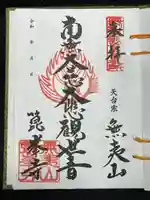 奉拝
天台宗
無夷山
南無大慈大悲観世音
令和 年 月 日
箟峯寺